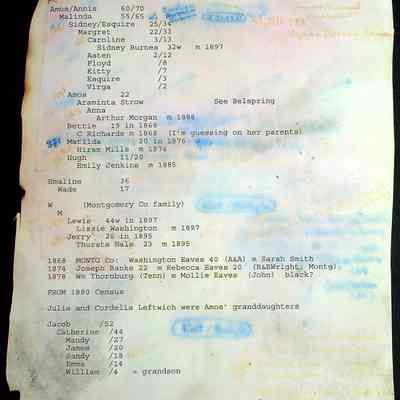 Amos/Annis 60/70
Malinda 55/65
Sidney/Esquire 25/34
Margret 22/33
Caroline 3/13
Sidney Burnes 32w m 1897
Asten 2/12
Floyd /8
Kitty /7
Esquire /3
Virga /2
Amos 22
Araminta Strow See Belspring
Anna
Arthur Morgan m 1886
Bettie 19 in 1868
C Richards m 1868 (I'm guessing on her parents)
Matilda 20 in 1876
Hiram Mills m 1876
Hugh 11/20
Emily Jenkine m 1885
Emaline 36
Wade 17
W (Montgomery Co family)
M
Lewis 44w in 1897
Lizzie Washington m 1897
Jerry 26 in 1895
Thursta Hale 23 m 1895
1868 MONTG Co: Washington Eaves 40 (A&A) m Sarah Smith
1874 Joseph Banks 22 m Rebecca Eaves 20 (R&BWright, Montg)
1878 Wm Thornburg (Tenn) m Mollie Eaves (John) black?
FROM 1880 Census
Julia and Cordelia Leftwich were Amos' granddaughters
Jacob /52
Catherine /44
Mandy /27
James /20
Sandy /18
Emma /14
William /4 = grandson